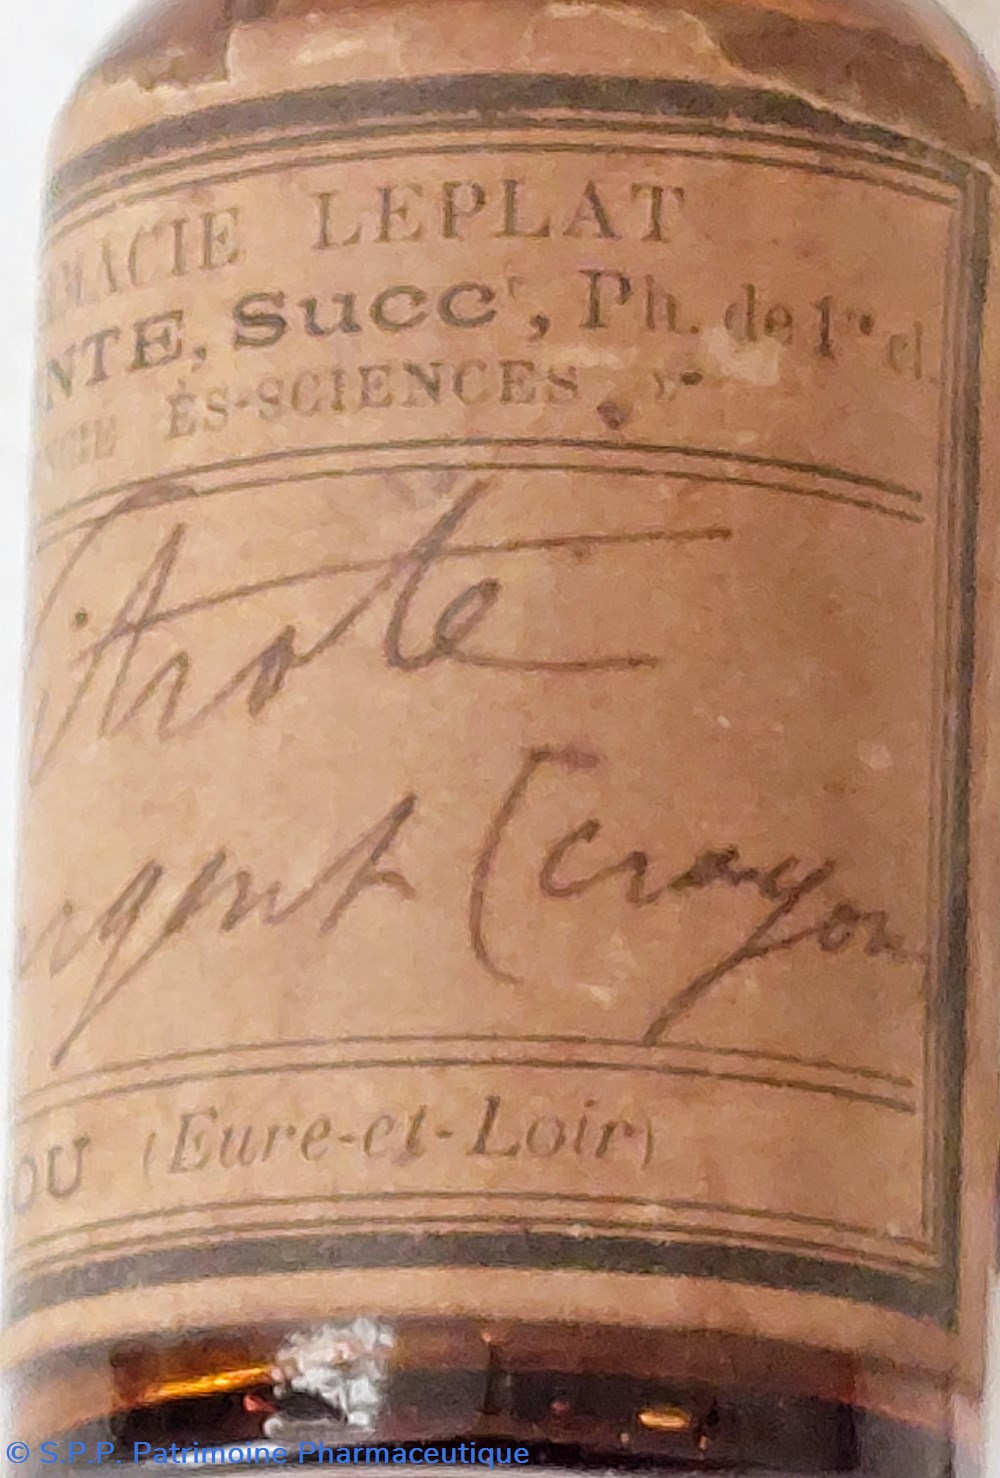 MACIE LEPLAT
NTE, Succr, Ph. de 1re cl.
ÈS-SCIENCES
itrate
argent (crayon
OU (Eure-et-Loir)
© S.P.P. Patrimoine Pharmaceutique